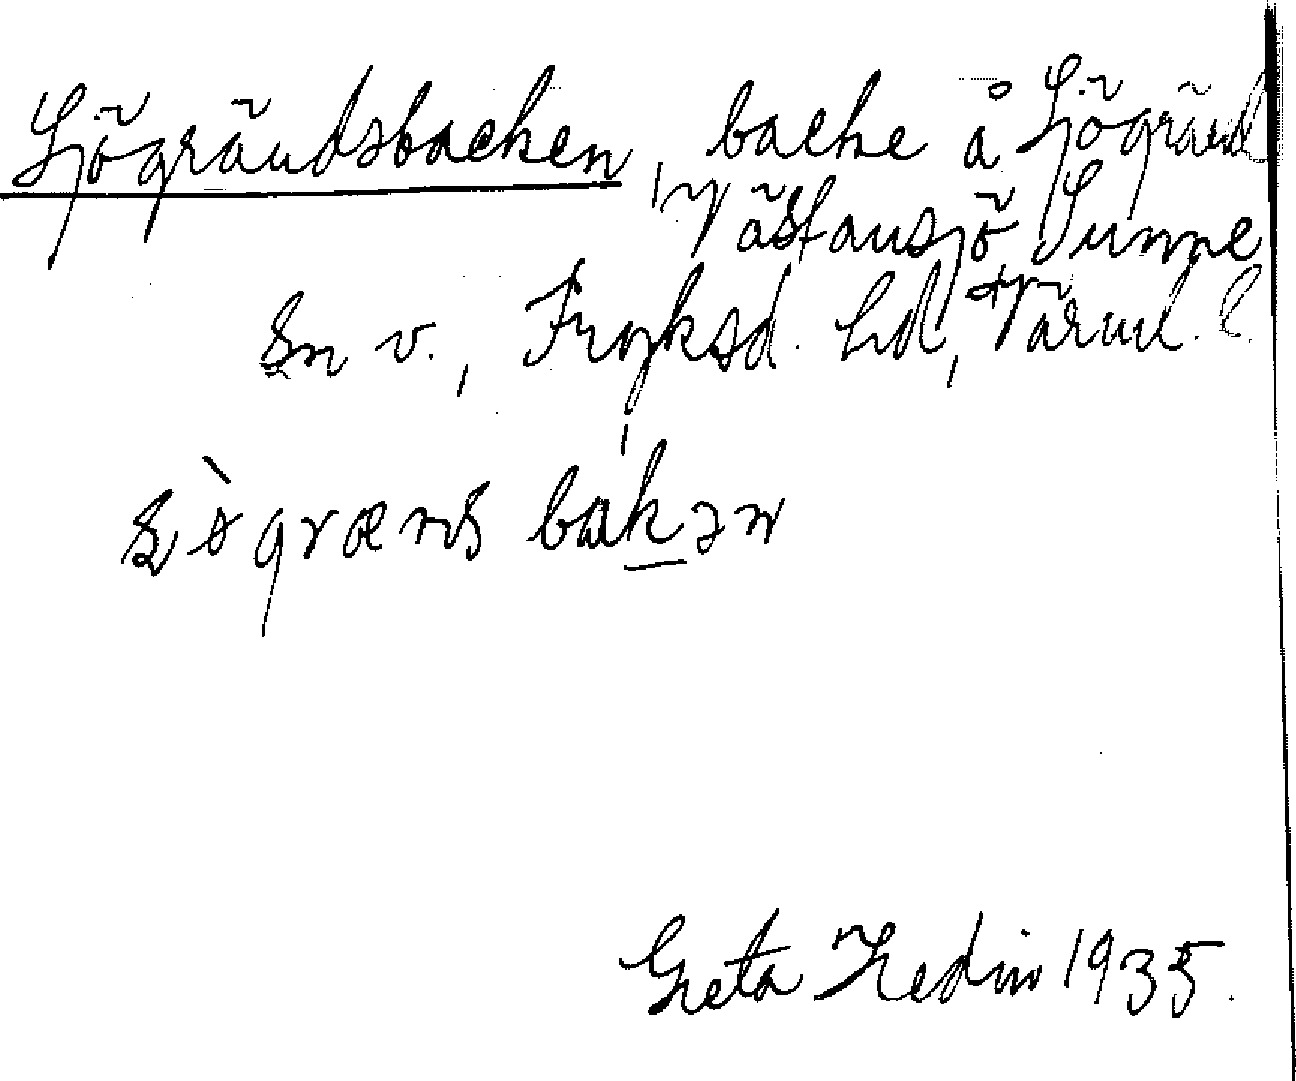 Sjögrändsbacken, backe å Sjögränd,
Västansjö Sunne
sn v., Fryksd. hd, Värml. l.
bakən
Greta Hedin 1935.